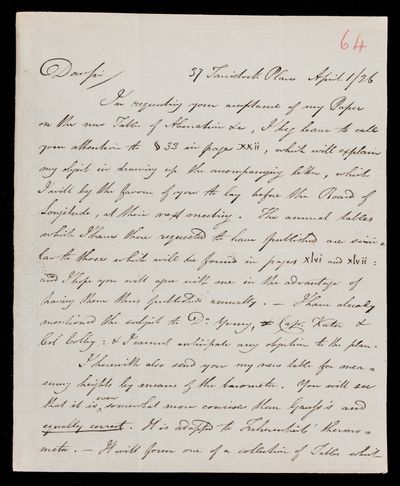 64
Dear Sir/ 37 Tavistock Place April 1/26
In requesting your acceptance of my Paper
on the new Tables of Aberration &c, I beg leave to call
your attention to § 33 in page xxii, which will explain
my object in drawing up the accompanying letter, which
I will by the favour of you to lay before the Board of
Longitude, at their next meeting. The annual tables
which I have there requested to have published are simi-
lar to those which will be found in pages xlvi and xlvii:
and I hope you will agree with me in the advantage of
having them thus published annually. — I have already
mentioned the subject to Dr Young, Capt. Kater &
Col Colby: & I cannot anticipate any objection to the plan.
I herewith also send you my new table for mea-
suring heights by means of the barometer. You will see
that it is even somewhat more concise than Gauss's and
equally correct. It is adapted to Fahrenheit's thermo-
meter. — It will form one of a collection of Tables which